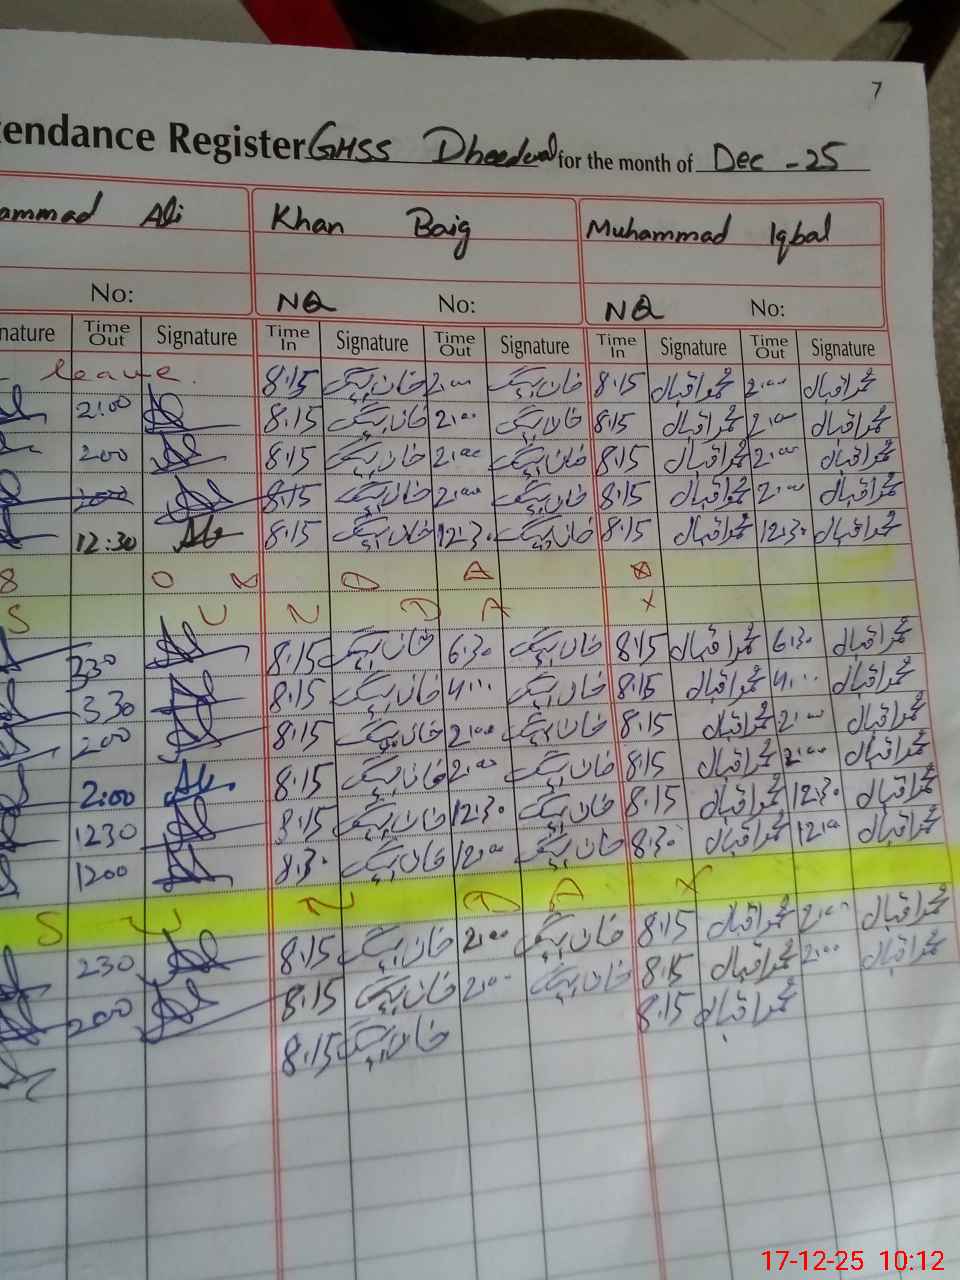 7
tendance Register GHSS Dheedwal for the month of Dec - 25
ammad Ali Khan Baig Muhammad Iqbal
No: NQ No: NQ No:
nature Time Out Signature Time In Signature Time Out Signature Time In Signature Time Out Signature
leave. 8:15 خان بیگ 2:00 خان بیگ 8:15 محمد اقبال 2:00 محمد اقبال
2:00 8:15 خان بیگ 2:00 خان بیگ 8:15 محمد اقبال 2:00 محمد اقبال
200 8:15 خان بیگ 2:00 خان بیگ 8:15 محمد اقبال 2:00 محمد اقبال
200 8:15 خان بیگ 2:00 خان بیگ 8:15 محمد اقبال 2:00 محمد اقبال
12:30 8:15 خان بیگ 12:30 خان بیگ 8:15 محمد اقبال 12:30 محمد اقبال
D A
S U N D A Y
330 8:15 خان بیگ 6:30 خان بیگ 8:15 محمد اقبال 6:30 محمد اقبال
330 8:15 خان بیگ 4:00 خان بیگ 8:15 محمد اقبال 4:00 محمد اقبال
200 8:15 خان بیگ 2:00 خان بیگ 8:15 محمد اقبال 2:00 محمد اقبال
2:00 8:15 خان بیگ 2:00 خان بیگ 8:15 محمد اقبال 2:00 محمد اقبال
1230 8:15 خان بیگ 12:30 خان بیگ 8:15 محمد اقبال 12:30 محمد اقبال
1200 8:30 خان بیگ 12:00 خان بیگ 8:30 محمد اقبال 12:00 محمد اقبال
S U N D A Y
230 8:15 خان بیگ 2:00 خان بیگ 8:15 محمد اقبال 2:00 محمد اقبال
200 8:15 خان بیگ 2:00 خان بیگ 8:15 محمد اقبال 2:00 محمد اقبال
8:15 خان بیگ 8:15 محمد اقبال
17-12-25 10:12